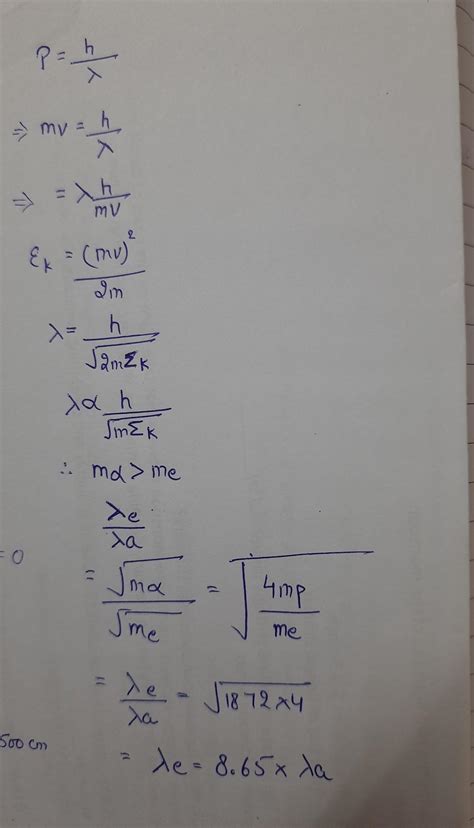 P = h/λ
⇒ mv = h/λ
⇒ = λ h/mv
Ɛk = (mv)²/2m
λ = h/√2mΣk
λα h/√mΣk
∴ mα > me
λe/λa
= 0
= √mα/√me = √4mp/me
= λe/λa = √1872×4
500 cm
= λe = 8.65 × λa